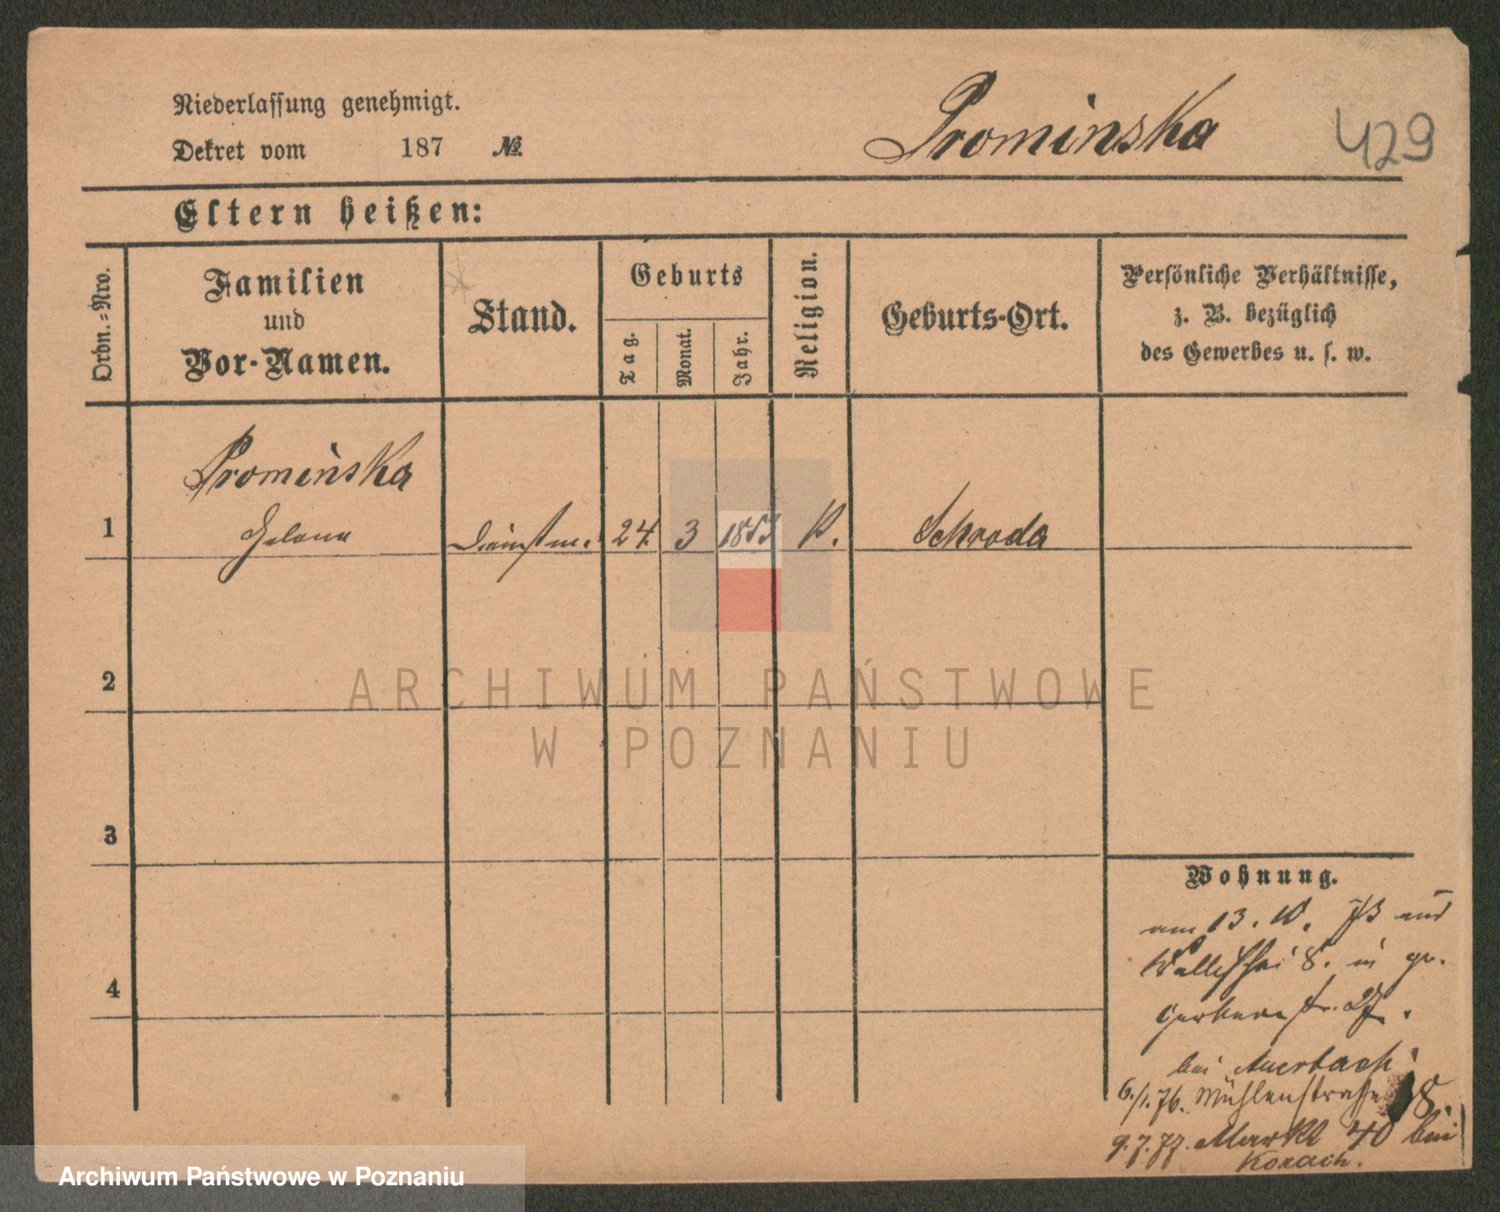 Niederlassung genehmigt.
Dekret vom 187 №.
Prominska
429
Eltern heißen:
Ordn.-Nro.
Familien
und
Vor-Namen.
Stand.
Geburts
Tag.
Monat.
Jahr.
Religion.
Geburts-Ort.
Persönliche Verhältnisse,
z. B. bezüglich
des Gewerbes u. s. w.
Promińska
1 Helena Dienstm. 24 3 1853 K. Schroda
2
3
4
Wohnung.
am 13. 10. 73 aus
Wallischei 8. in gr.
Gerberstr. 27.
bei Auerbach.
6./1. 76. Mühlenstraße 18.
9.7.77. Markt 40 bei
Korach.
ARCHIWUM PAŃSTWOWE
W POZNANIU
Archiwum Państwowe w Poznaniu